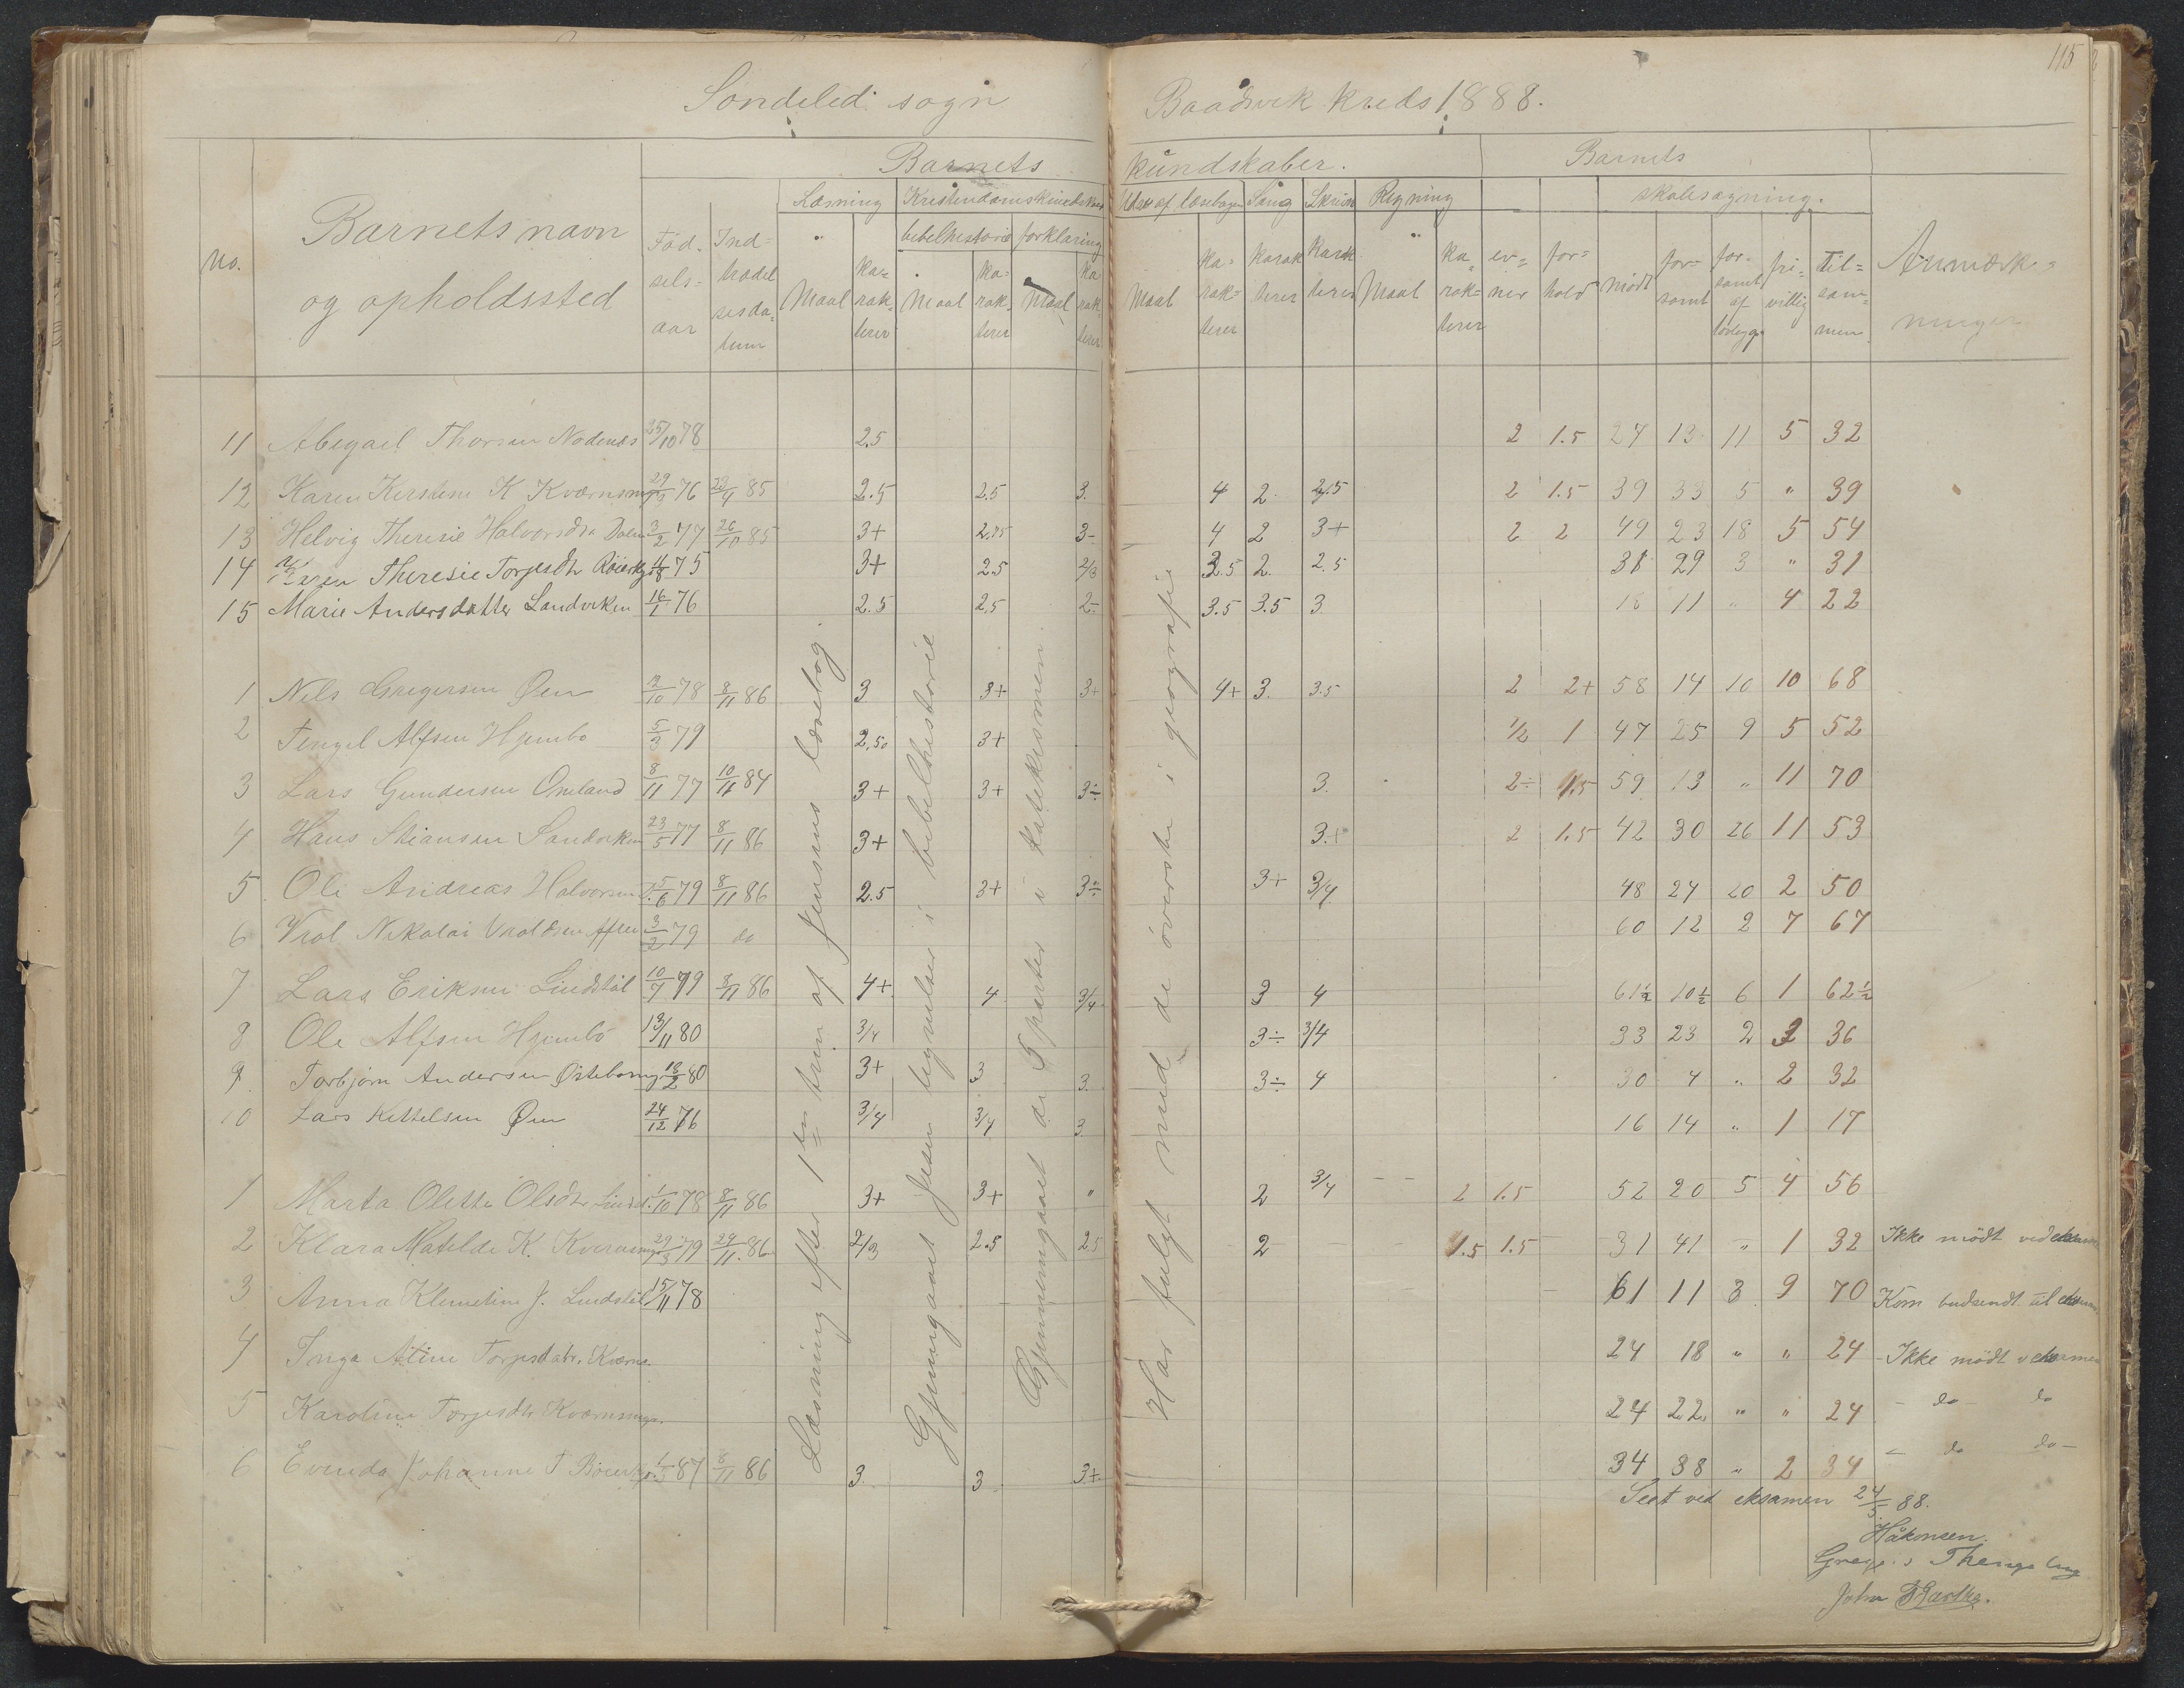 115
Sondeled sogn Baadsvik kreds 1888.
Barnets kundskaber. Barnets
Læsning Kristendomskundskab Udv. af læsebogen Sang Skrivn Regning skolesøgning.
bibelhistorie forklaring
No. Barnets navn og opholdssted Fødselsaar Indtrædelsesdatum Maal karakterer Maal karakterer Maal karakterer Maal karakterer karakterer karakterer Maal karakterer evner forhold mødt forsømt forsømt af lovlig gr frivillig Tilsammen Anmærkninger
11 Abegael Thorsen Nødenes 25/10 78 2.5 2 1.5 27 13 11 5 32
12 Karen Kirstine K Kværnsmyr 29/3 76 23/4 85 2.5 2.5 3. 4 2. 2.5 2 1.5 39 33 5 " 39
13 Helvig Theresie Halvorsdtr Dalen 3/2 77 26/10 85 3+ 2.75 3- 4 2 3+ 2 2 49 23 18 5 54
14 Karen Theresie Torjesdtr 11/8 75 3+ 2.5 2/3 3.5 2. 2.5 31 29 3 " 31
15 Marie Andersdatter Sandviken 16/1 76 2.5 2.5 2- 3.5 3.5 3 18 11 " 4 22
1 Nils Gregersen Øen 12/10 78 8/11 86 3 3+ 3+ 4+ 3. 3.5 2 2+ 58 14 10 10 68
2 Tengel Alfsen Hjembø 5/3 79 2.50 3+ 1/2 1 47 25 9 5 52
3 Lars Gundersen Omland 8/11 77 10/11 84 3+ 3+ 3÷ 3. 2÷ 1.5 59 13 " 11 70
4 Hans Stiansen Sandviken 23/5 77 8/11 86 3+ 3.+ 2 1.5 42 30 26 11 53
5 Ole Andreas Halvorsen 5/6 79 8/11 86 2.5 3+ 3÷ 3+ 3/4 48 24 20 2 50
6 Vrol Nikolai Vroldsen 3/2 79 do 60 12 2 7 67
7 Lars Eriksen Lindstøl 10/7 79 8/11 86 4+ 4 3/4 3 4 61½ 10½ 6 1 62½
8 Ole Alfsen Hjembø 13/11 80 3/4 3÷ 3/4 33 23 2 3 36
9 Torbjørn Andersen Østebømyr 18/2 80 3+ 3 3. 3÷ 4 30 4 " 2 32
10 Lars Kittelsen Øen 24/12 76 3/4 3/4 3 16 14 " 1 17
1 Marta Olette Olsdtr Lindst. 1/10 78 8/11 86 3+ 3+ " 2 3/4 2 1.5 52 20 5 4 56
2 Klara Matilde K. Kværnsmyr 29/3 79 29/11 86 2/3 2.5 2.5 2 1.5 1.5 31 41 " 1 32 Ikke mødt ved eksamen
3 Anna Klementine J. Lindstøl 15/11 78 61 11 3 9 70 Kom budsendt til eksamen
4 Inga Atine Torjesdatr. Kværns. 24 18 " " 24 Ikke mødt v eksamen
5 Karoline Torjesdtr Kværnsmyr. 24 22 " " 24 - do - do
6 Evenda Johanne T 87 8/11 86 3. 3 3+ 34 38 " 2 34 - do do -
Læsning efter 1ste trin af Jensens læsebog.
Gjennemgaaet Jesu lignelser i bibelhistorie
Gjennemgaaet de 5 parter i katekismen.
Har fulgt med de øverste i geografie
Seet ved eksamen 24/5 88.
Håkonsen.
John